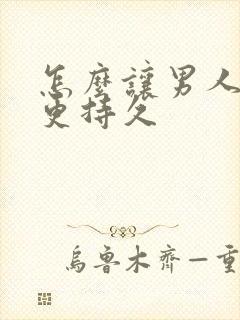 怎麽讓男人
更持久
烏魯木齊—重